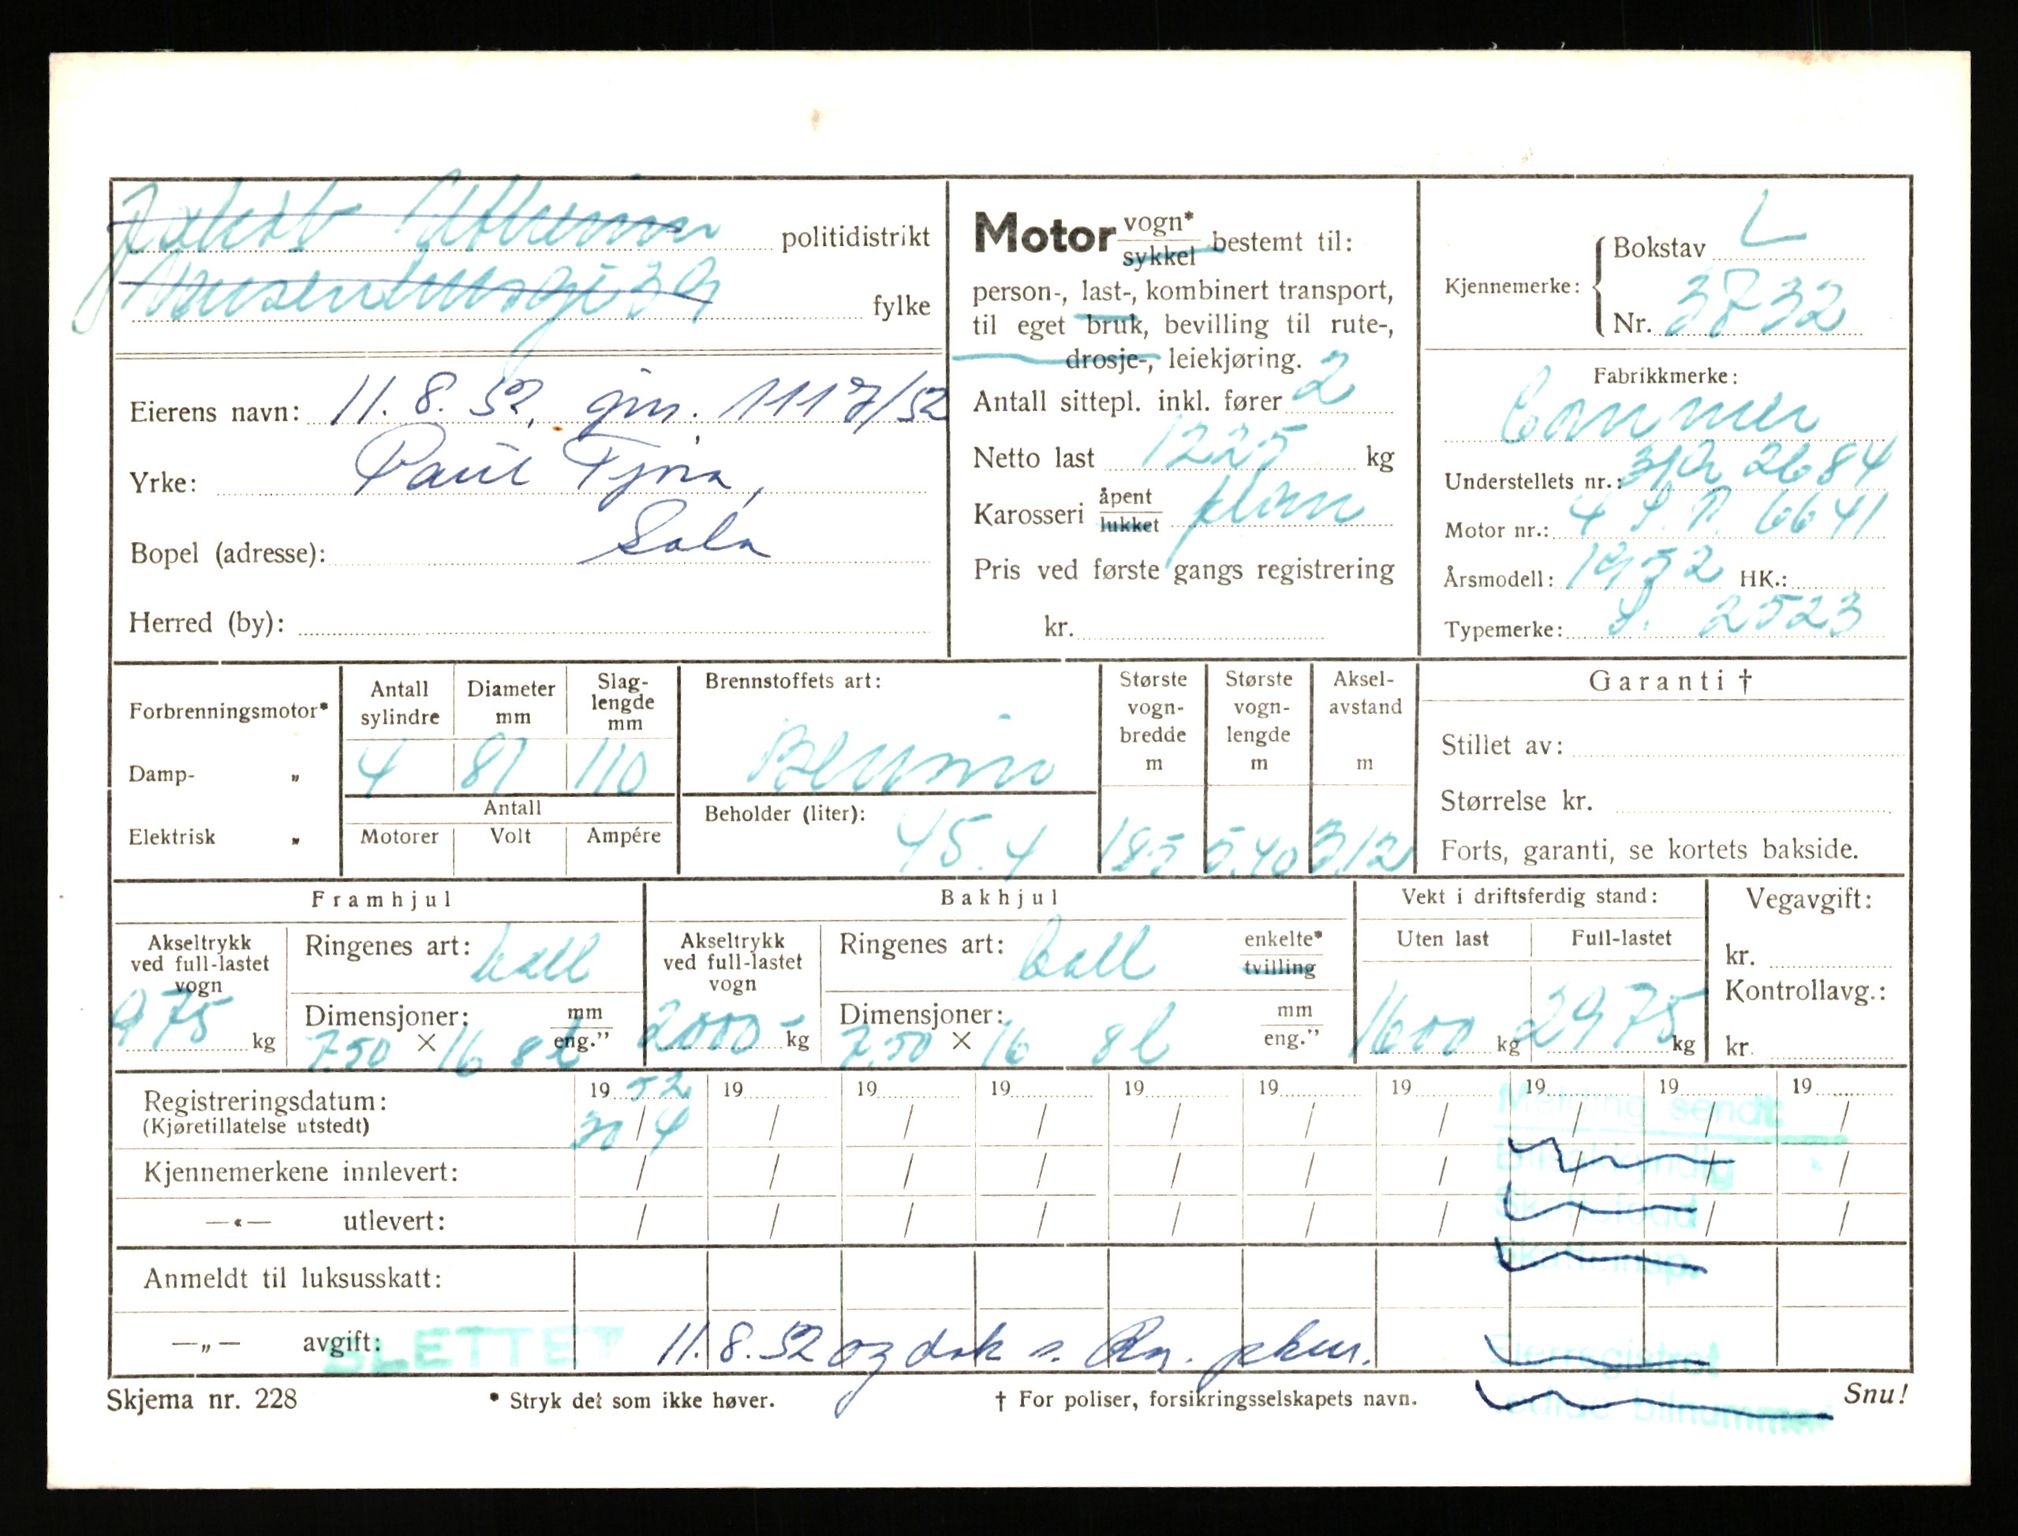 politidistrikt
fylke
Eierens navn: 11.8.52, gjn. 1117/52
Yrke: Paul Tjora,
Bopel (adresse): Sola
Herred (by):
Motor vogn* / sykkel bestemt til:
person-, last-, kombinert transport,
til eget bruk, bevilling til rute-,
drosje-, leiekjøring.
Antall sittepl. inkl. fører 2
Netto last 1225 kg
Karosseri åpent / lukket plan
Pris ved første gangs registrering
kr.
Kjennemerke: Bokstav L
Nr. 3732
Fabrikkmerke:
Commer
Understellets nr.: 2684
Motor nr.: 6641
Årsmodell: 1952 HK.:
Typemerke: 2523
Forbrenningsmotor*
Damp- "
Elektrisk "
Antall sylindre 4
Diameter mm 81
Slag-lengde mm 110
Antall
Motorer Volt Ampére
Brennstoffets art:
Bensin
Beholder (liter): 45.4
Største vogn-bredde m 185
Største vogn-lengde m 5.40
Aksel-avstand m 312
Garanti †
Stillet av:
Størrelse kr.
Forts, garanti, se kortets bakside.
Framhjul
Akseltrykk ved full-lastet vogn 975 kg
Ringenes art: ball
Dimensjoner: 7.50 × 16 8l mm / eng."
Bakhjul
Akseltrykk ved full-lastet vogn 2000 kg
Ringenes art: ball enkelte* / tvilling
Dimensjoner: 7.50 × 16 8l mm / eng."
Vekt i driftsferdig stand:
Uten last 1600 kg
Full-lastet 2975 kg
Vegavgift:
kr.
Kontrollavg.:
kr.
19 52 19 19 19 19 19 19 19 19 19
Registreringsdatum: 30/4 / / / / / / / / /
(Kjøretillatelse utstedt)
Kjennemerkene innlevert: / / / / / / / / / /
—«— utlevert: / / / / / / / / / /
Anmeldt til luksusskatt:
—„— avgift: 11.8.52 og dok s.
SLETTET
Melding sendt
Skjema nr. 228
* Stryk det som ikke høver.
† For poliser, forsikringsselskapets navn.
Snu!